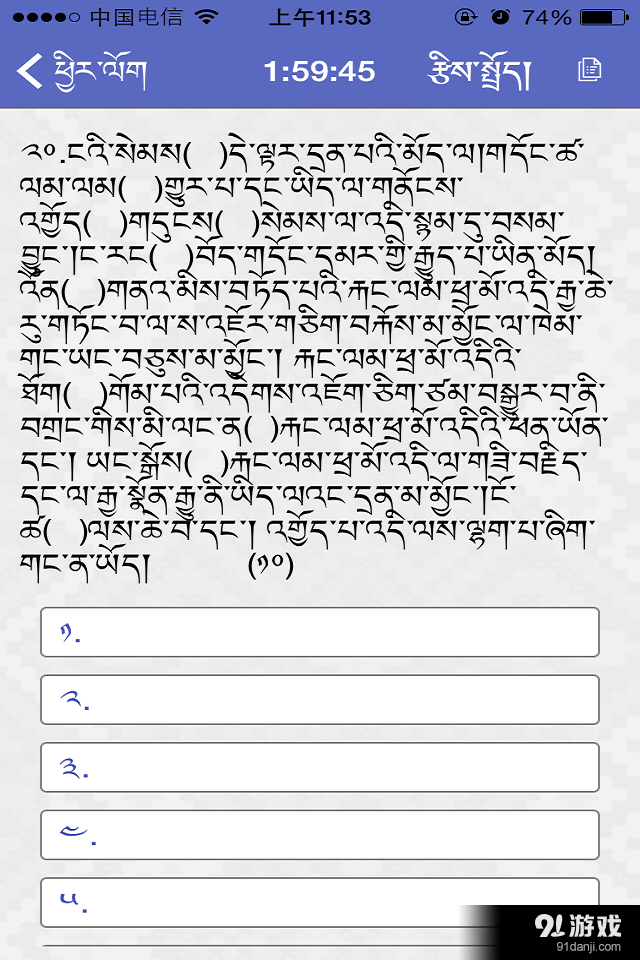 中国电信 上午11:53 74%
ཕྱིར་ལོག 1:59:45 རྩིས་སྤྲོད།
༢༠.ངའི་སེམས( )དེ་ལྟར་དྲན་པའི་མོད་ལ།གདོང་ཚ་
ལམ་ལམ( )གྱུར་པ་དང་ཡིད་ལ་གནོངས་
འགྱོད( )གདུངས( )སེམས་ལ་འདི་སྙམ་དུ་བསམ་
བྱུང་།ང་རང( )བོད་གདོང་དམར་གྱི་རྒྱུད་པ་ཡིན་མོད།
འོན( )གནའ་མིས་བཏོད་པའི་རྐང་ལམ་ཕྲ་མོ་འདི་རྒྱ་ཆེ་
རུ་གཏོང་བ་ལ་ས་འཇོར་གཅིག་བརྐོས་མ་མྱོང་ལ་ཁེམ་
གང་ཡང་བཅུས་མ་མྱོང་། རྐང་ལམ་ཕྲ་མོ་འདིའི་
ཐོག( )གོམ་པའི་འདེགས་འཇོག་ཅིག་ཙམ་བསྒྱུར་བ་ནི་
བགྲང་གིས་མི་ལང་ན( )རྐང་ལམ་ཕྲ་མོ་འདིའི་ཕན་ཡོན་
དང་། ཡང་སྒོས( )རྐང་ལམ་ཕྲ་མོ་འདི་ལ་གཟི་བརྗིད་
དང་ལ་རྒྱ་སྣོན་རྒྱུ་ནི་ཡིད་ལའང་དྲན་མ་མྱོང་།ངོ་
ཚ( )ལས་ཆེ་བ་དང་། འགྱོད་པ་འདི་ལས་ལྷག་པ་ཞིག་
གང་ན་ཡོད། (༡༠)
༡.
༢.
༣.
༤.
༥.
91游戏
91danji.com